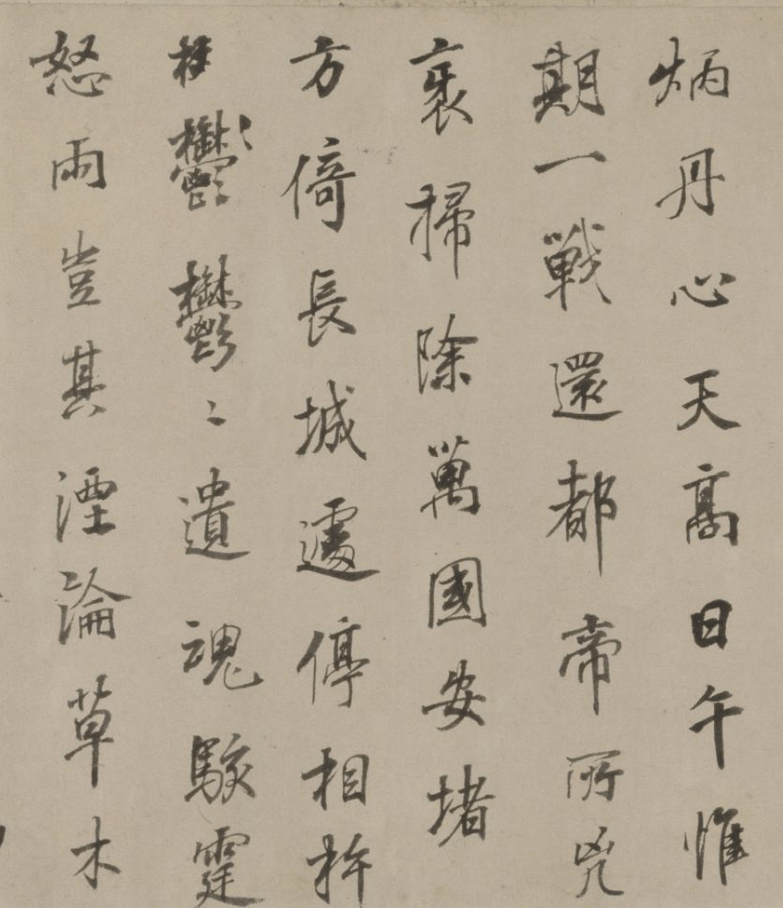 炳丹心天高日午惟
期一戰還都帝所兇
裘掃除萬國安堵
方倚長城遽停相杵
鬱鬱〻遺魂駭霆
怒雨豈其湮淪草木